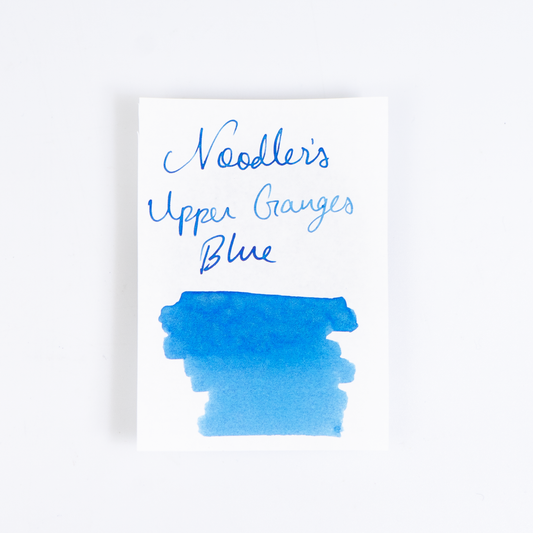 Noodler's
Upper Ganges
Blue